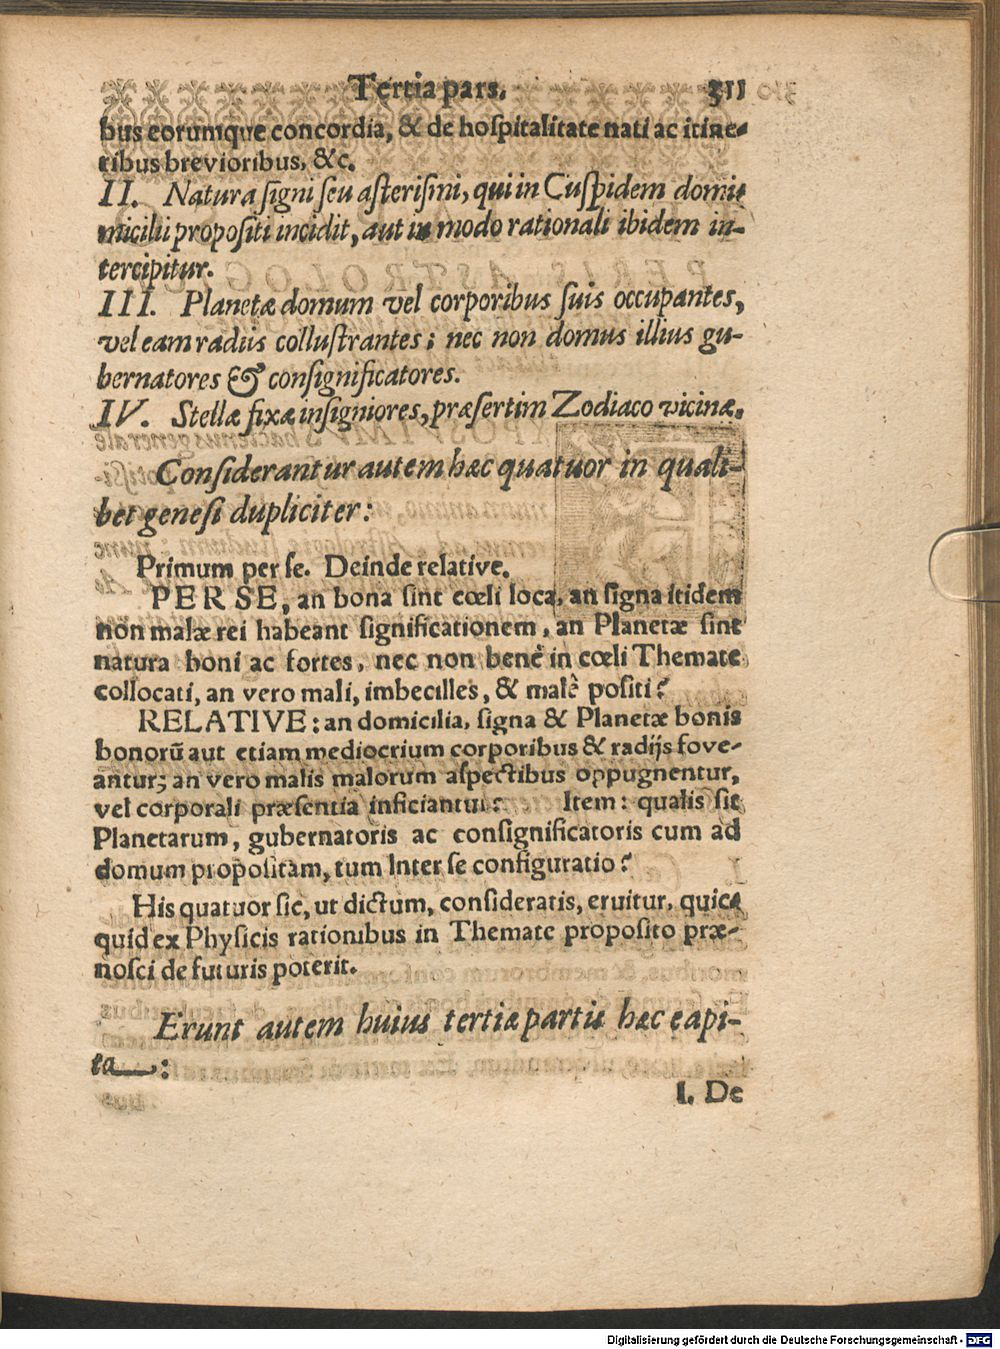 Tertia pars. 311
bus eorumque concordia, & de hoſpitalitate nati ac itine-
ribus brevioribus, &c.
II. Natura ſigni ſeu aſteriſmi, qui in Cuſpidem domi-
micilii propoſiti incidit, aut in modo rationali ibidem in-
tercipitur.
III. Planetæ domum vel corporibus ſuis occupantes,
vel eam radiis colluſtrantes; nec non domus illius gu-
bernatores & conſignificatores.
IV. Stellæ fixæ inſigniores, præſertim Zodiaco vicinæ.
Conſiderantur autem hæc quatuor in quali-
bet geneſi dupliciter:
Primum per ſe. Deinde relative.
PER SE, an bona ſint cœli loca, an ſigna itidem
non malæ rei habeant ſignificationem, an Planetæ ſint
natura boni ac fortes, nec non benè in cœli Themate
collocati, an vero mali, imbecilles, & malè poſiti?
RELATIVE: an domicilia, ſigna & Planetæ bonis
bonorū aut etiam mediocrium corporibus & radijs fove-
antur; an vero malis malorum aſpectibus oppugnentur,
vel corporali præſentia inficiantur? Item: qualis ſit
Planetarum, gubernatoris ac conſignificatoris cum ad
domum propoſitam, tum Inter ſe configuratio?
His quatuor ſic, ut dictum, conſideratis, eruitur, quic-
quid ex Phyſicis rationibus in Themate propoſito præ-
noſci de futuris poterit.
Erunt autem huius tertiæ partis hæc capi-
ta:
I. De
Digitalisierung gefördert durch die Deutsche Forschungsgemeinschaft - DFG